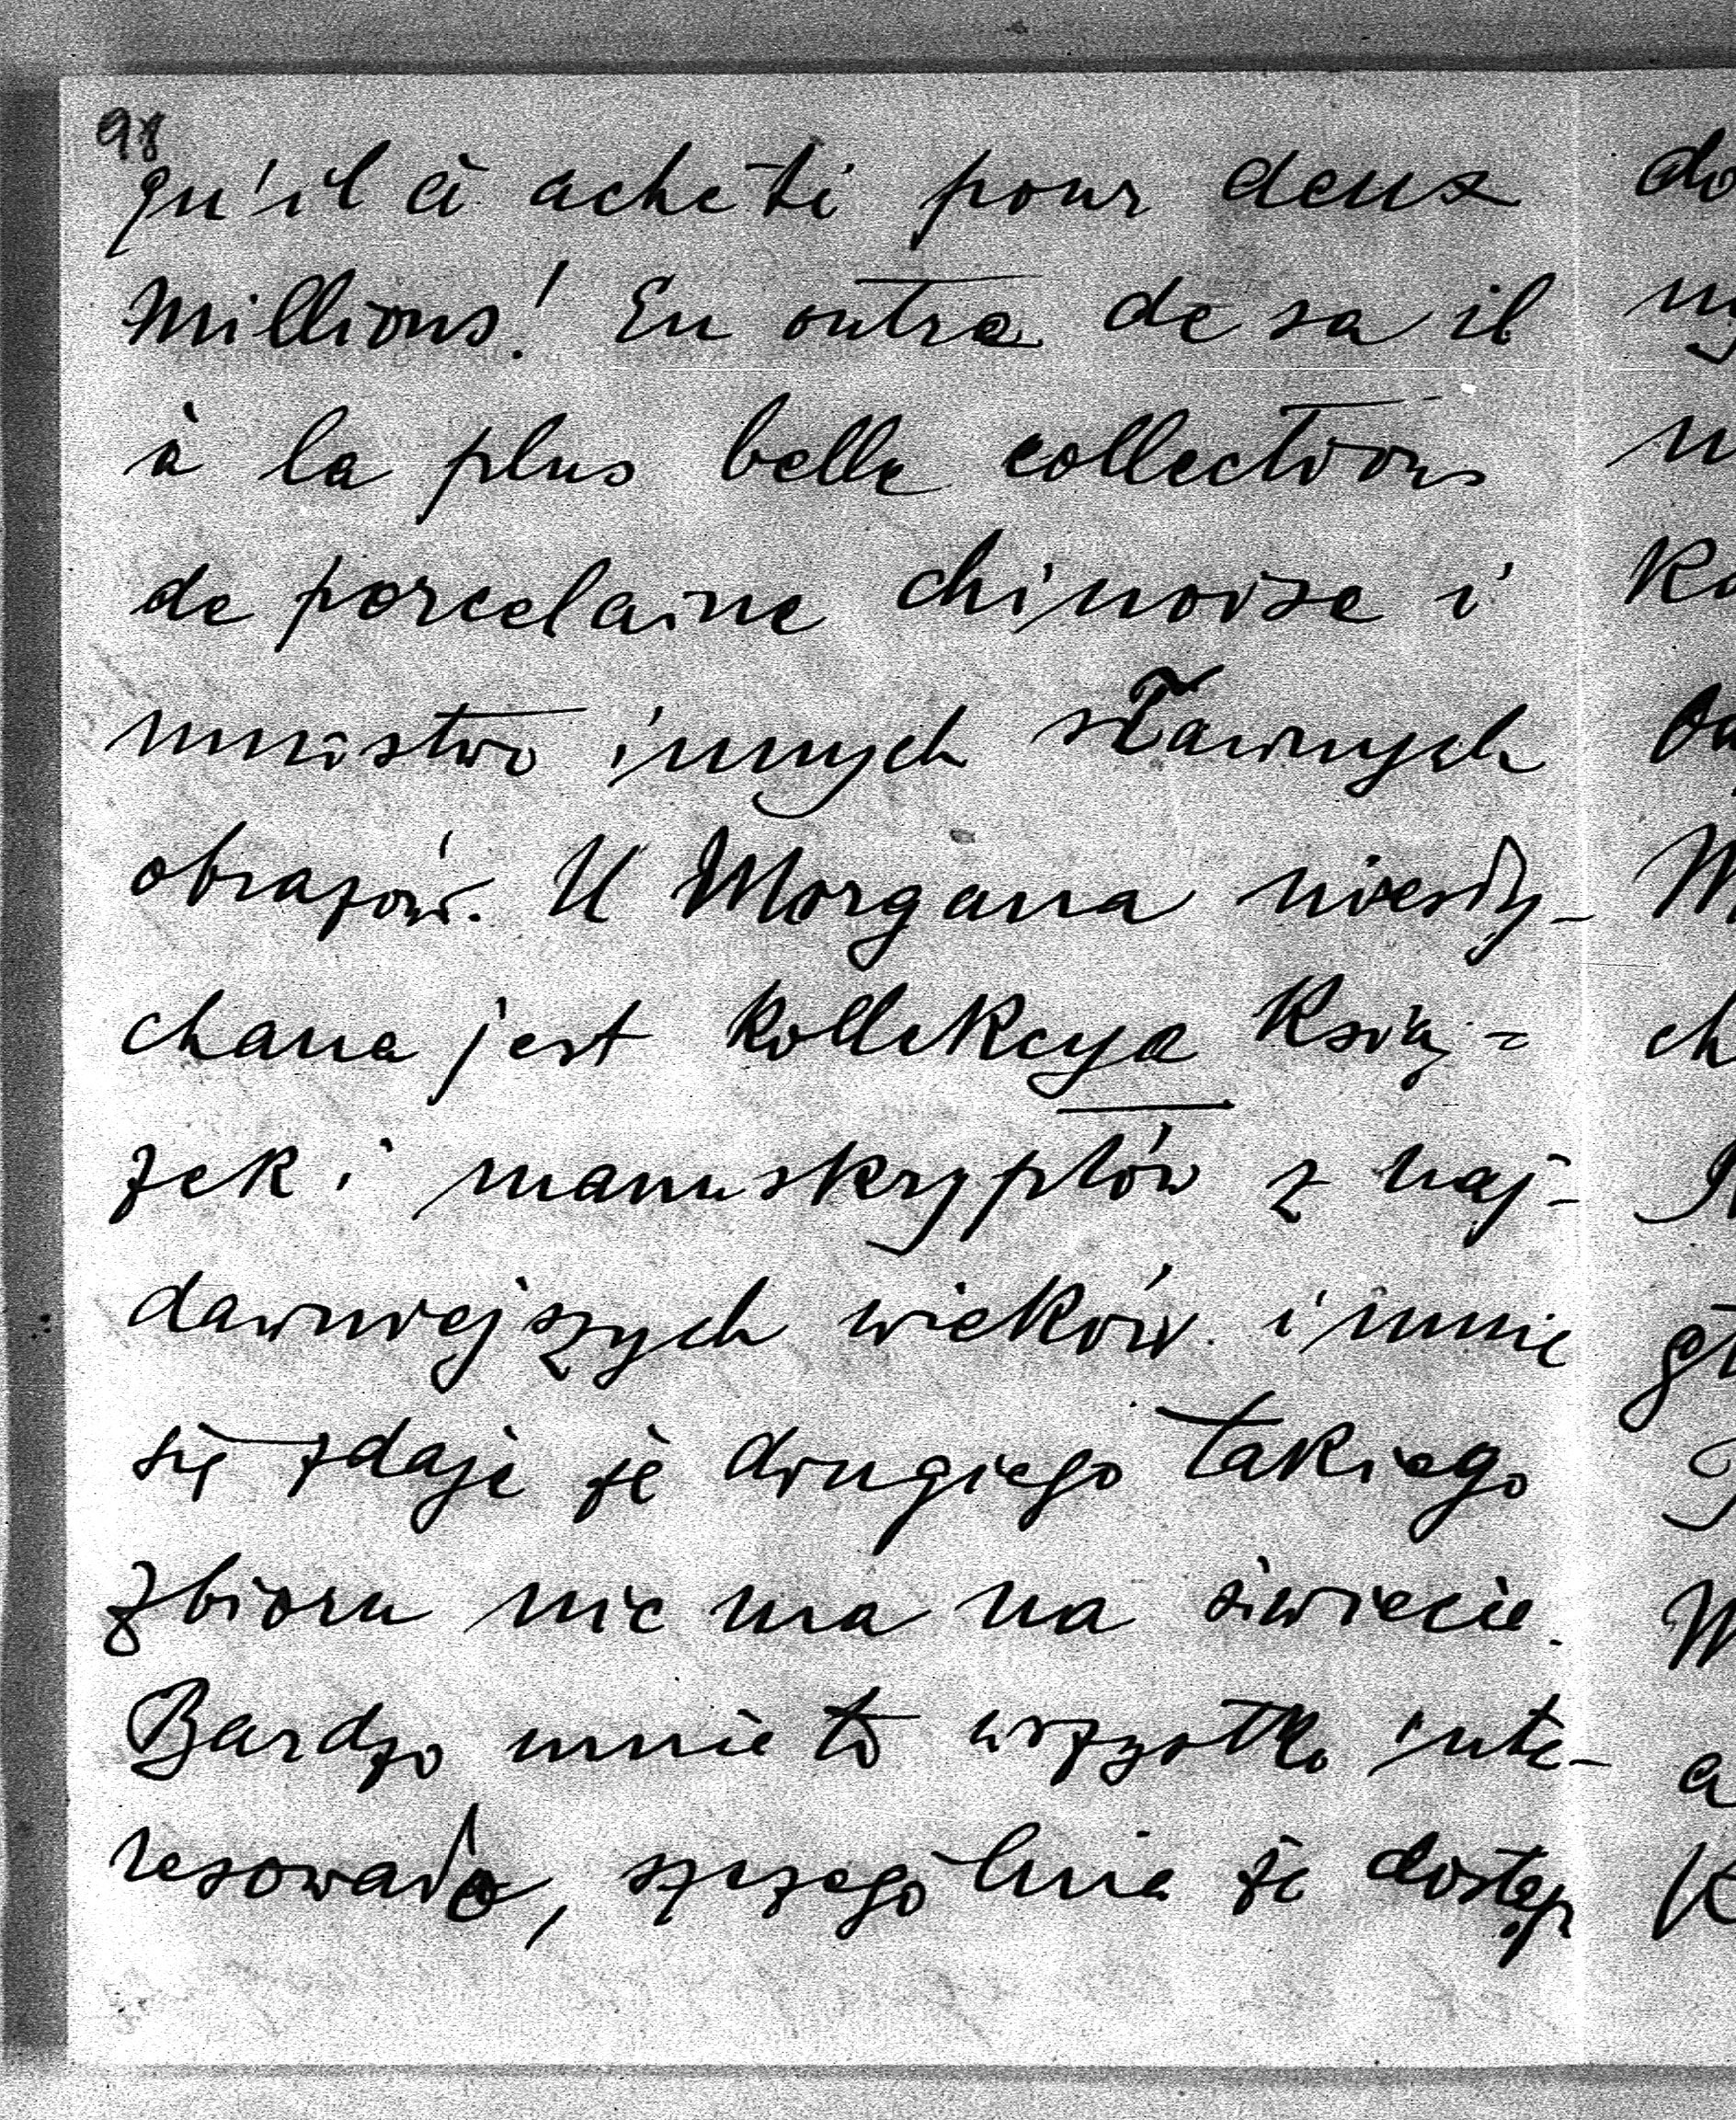 98
qu'il à acheti pour deux
Millions! En outre de sa il
à la plus belle collections
de porcelaine chinoise i
mnóstwo innych sławnych
obrazów. U Morgana niesły-
chana jest kollekcya Ksią-
żek i manuskryptów z naj-
dawniejszych wieków i mnie
się zdaje że drugiego takiego
zbioru nie ma na świecie.
Bardzo mnie to wszystko inte-
resowało, szczególnie że dostęp